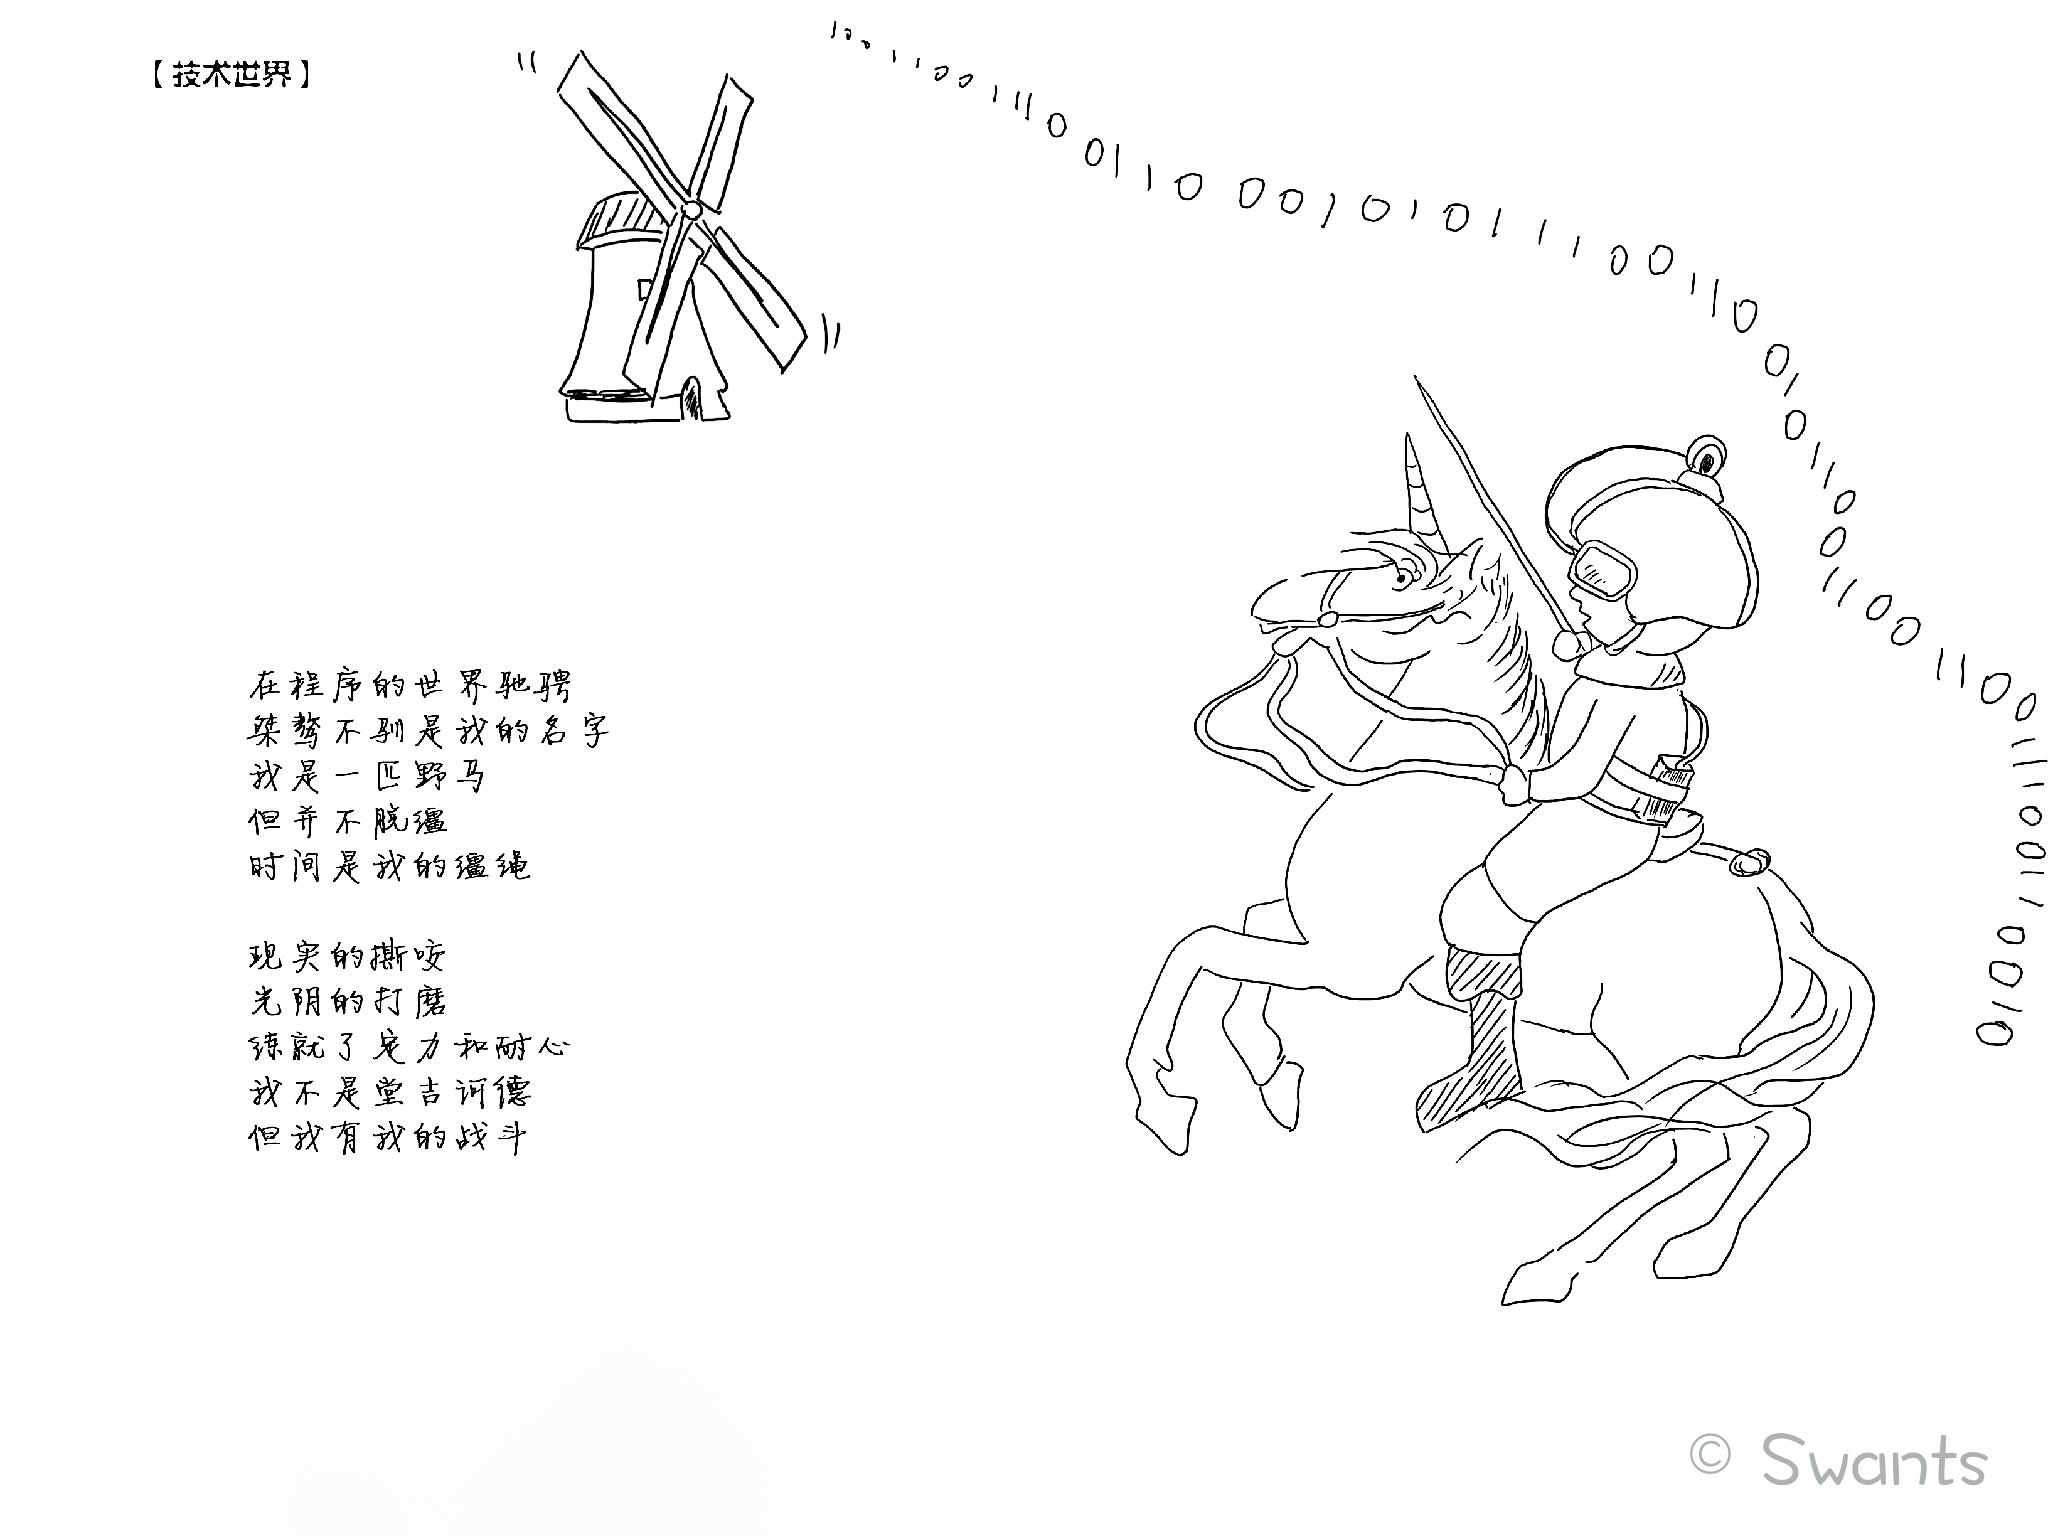 【技术世界】
1001100111001100010101110011001011000110011001111001100010
在程序的世界驰骋
桀骜不驯是我的名字
我是一匹野马
但并不脱缰
时间是我的缰绳
现实的撕咬
光阴的打磨
练就了定力和耐心
我不是堂吉诃德
但我有我的战斗
© Swants